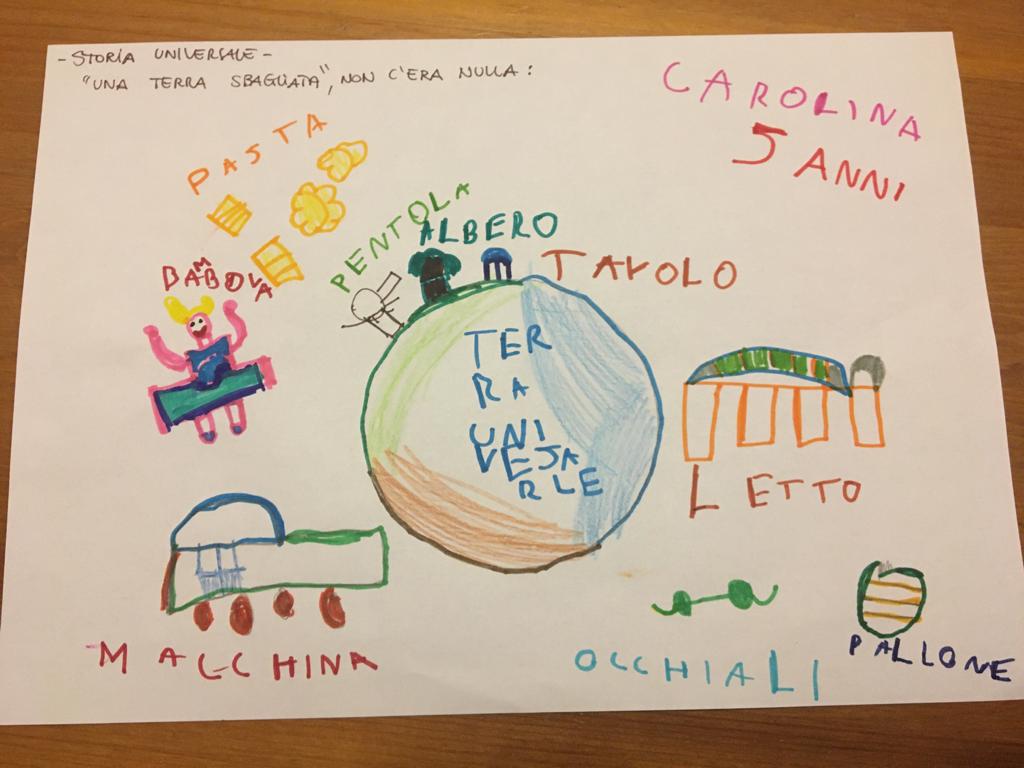 - STORIA UNIVERSALE -
"UNA TERRA SBAGLIATA", NON C'ERA NULLA:
CAROLINA
5 ANNI
PASTA
PENTOLA
ALBERO
TAVOLO
BAMBOLA
TER
RA
UNI
VEJA
RLE
LETTO
MACCHINA
OCCHIALI
PALLONE